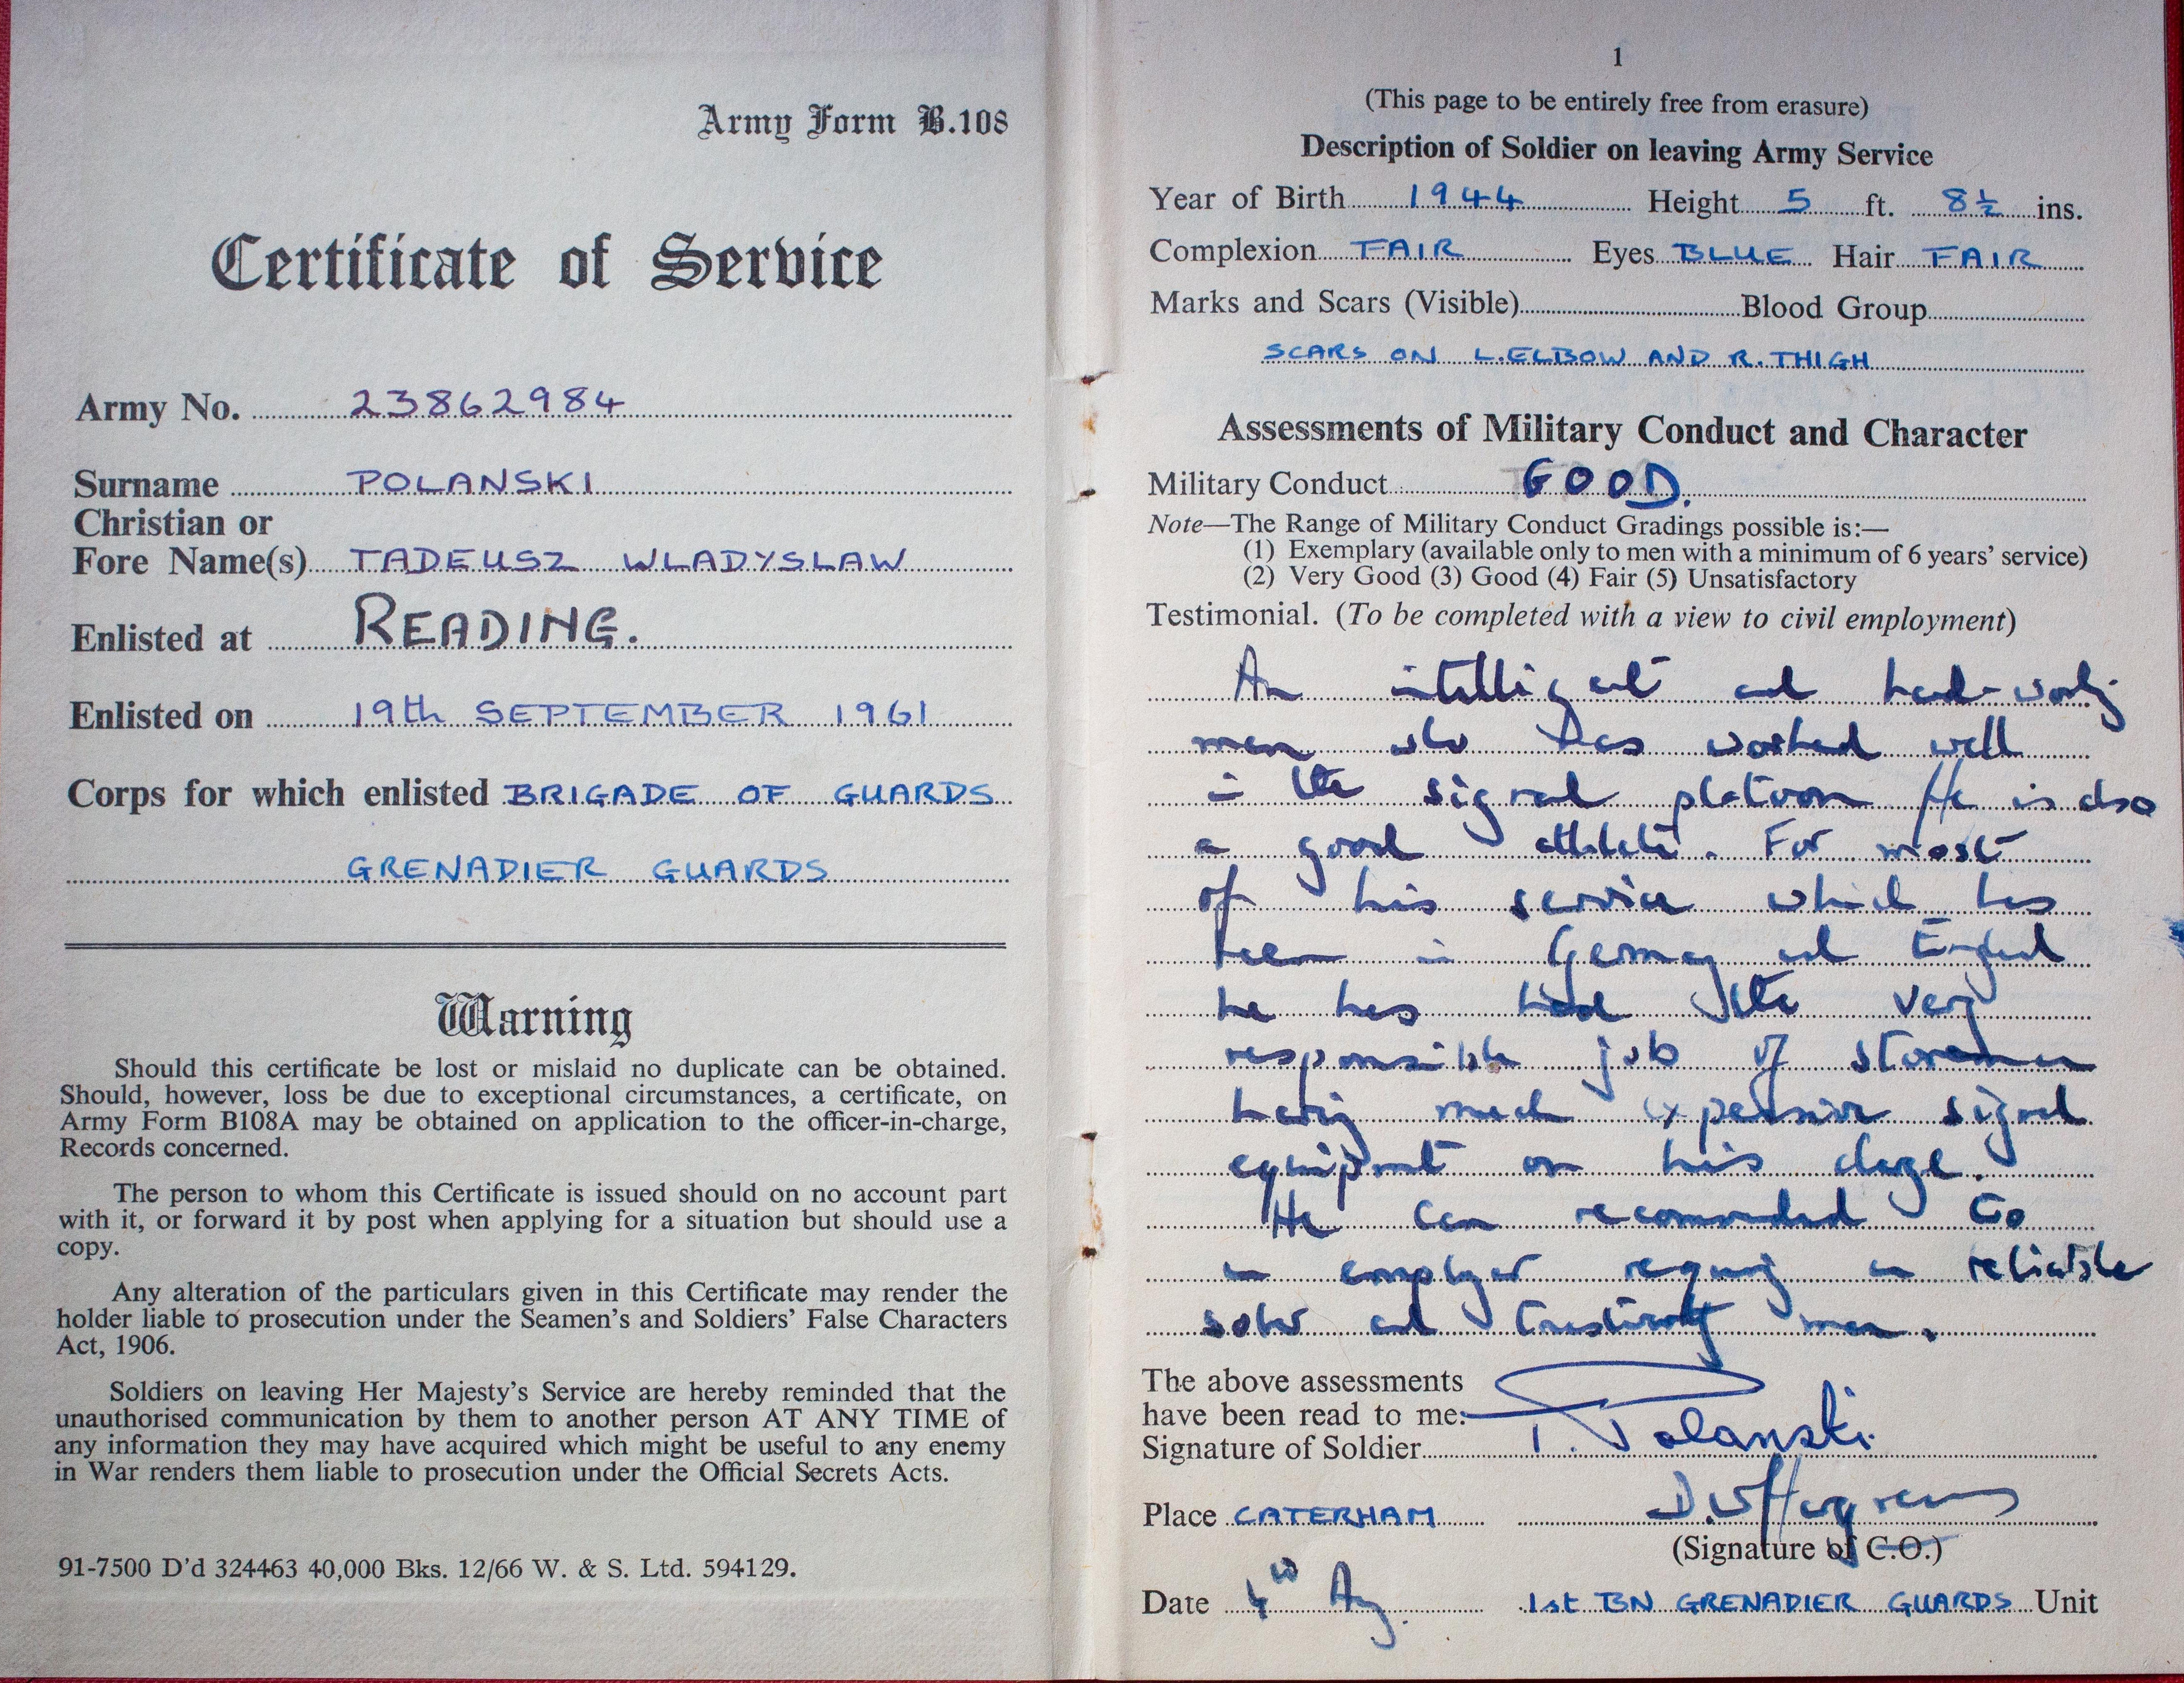 Army Form B.108
Certificate of Service
Army No. 23862984
Surname POLANSKI
Christian or
Fore Name(s) TADEUSZ WLADYSLAW
Enlisted at READING.
Enlisted on 19th SEPTEMBER 1961
Corps for which enlisted BRIGADE OF GUARDS
GRENADIER GUARDS
Warning
Should this certificate be lost or mislaid no duplicate can be obtained.
Should, however, loss be due to exceptional circumstances, a certificate, on
Army Form B108A may be obtained on application to the officer-in-charge,
Records concerned.
The person to whom this Certificate is issued should on no account part
with it, or forward it by post when applying for a situation but should use a
copy.
Any alteration of the particulars given in this Certificate may render the
holder liable to prosecution under the Seamen's and Soldiers' False Characters
Act, 1906.
Soldiers on leaving Her Majesty's Service are hereby reminded that the
unauthorised communication by them to another person AT ANY TIME of
any information they may have acquired which might be useful to any enemy
in War renders them liable to prosecution under the Official Secrets Acts.
91-7500 D'd 324463 40,000 Bks. 12/66 W. & S. Ltd. 594129.
1
(This page to be entirely free from erasure)
Description of Soldier on leaving Army Service
Year of Birth 1944 Height 5 ft. 8½ ins.
Complexion FAIR Eyes BLUE Hair FAIR
Marks and Scars (Visible) Blood Group
SCARS ON L.ELBOW AND R.THIGH
Assessments of Military Conduct and Character
Military Conduct GOOD.
Note—The Range of Military Conduct Gradings possible is:—
(1) Exemplary (available only to men with a minimum of 6 years' service)
(2) Very Good (3) Good (4) Fair (5) Unsatisfactory
Testimonial. (To be completed with a view to civil employment)
An intelligent and hard-working
man who has worked well
in the signal platoon He is also
a good athlete. For most
of his service which has
been in Germany and England
he has had the very
responsible job of storeman
having much expensive signal
equipment on his charge.
He can recommended to
an employer requiring an reliable
sober and trustworthy man.
The above assessments
have been read to me:
Signature of Soldier T. Polanski
Place CATERHAM D.W Hargreaves
(Signature of C.O.)
Date 4th Aug. 1st BN GRENADIER GUARDS Unit